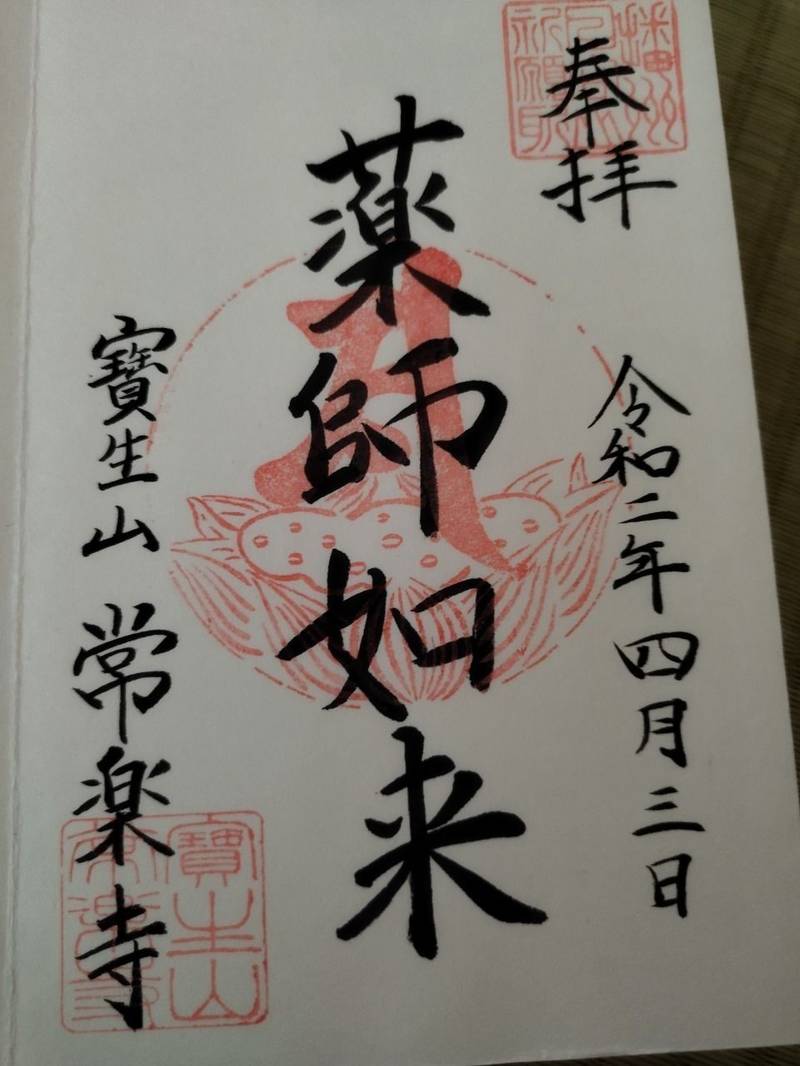 奉拝
令和二年四月三日
薬師如来
寶生山 常楽寺
寶生山